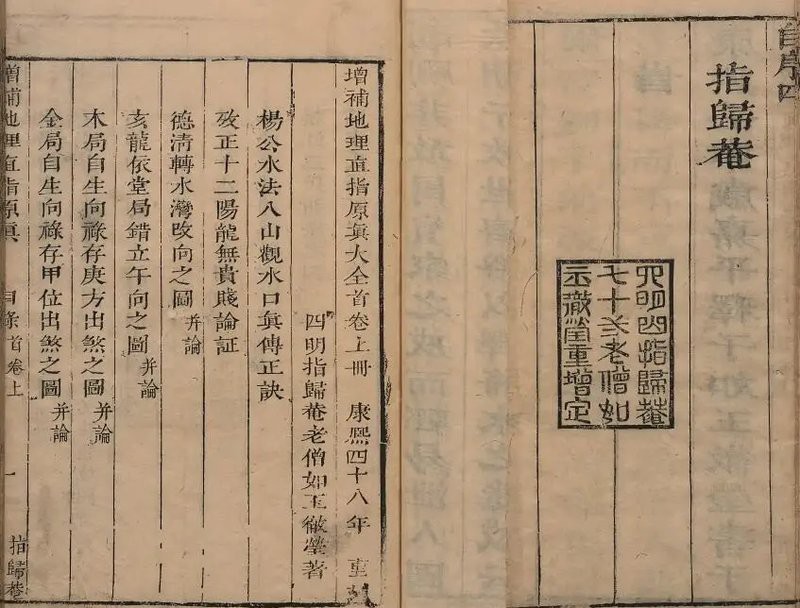 自序四
指歸菴
四明山指歸菴
七十老僧如
玉徹瑩重增定
增補地理直指原眞大全首卷上冊 康熙四十八年 重
四明指歸菴老僧如玉徹瑩著
楊公水法八山觀水口眞傳正訣
攷正十二陽龍無貴賤論証
德淸轉水灣改向之圖 并論
亥龍依堂局錯立午向之圖 并論
木局自生向祿存庚方出煞之圖 并論
金局自生向祿存甲位出煞之圖 并論
增補地理直指原眞 目条首卷上 一 指歸菴